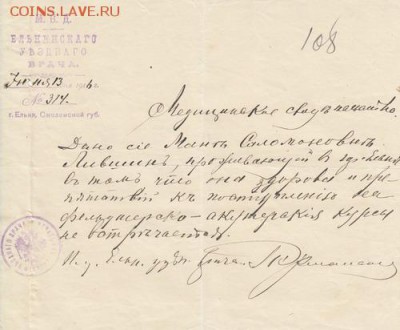 COINS.LAVE.RU
М. В. Д.
ЕЛЬНИНСКАГО
УѢЗДНАГО
ВРАЧА.
13
№ 314.
г. Ельня, Смоленской губ.
108
Медицинское свидѣтельство.
Дано сіе Соломоновнѣ
Лившинъ, проживающей въ
въ томъ что она здорова и пре-
пятствій къ поступленію на
фельдшерско-акушерскія курсы
не встрѣчается.
И. у. Ельн. уѣзд. врача